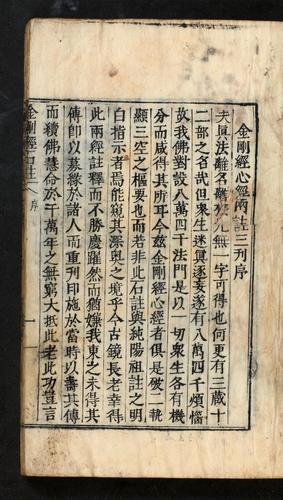 金剛經心經兩註三刊序
夫眞法離名離
無一字可得也何更有三藏十
二部之名哉但衆生迷眞逐妄遂有八萬四千煩惱
故我佛對設八萬四千法門是以一切衆生各有機
分而咸得其所耳今玆金剛經心經者俱是破二執
顯三空之樞要也而若非此石註與純陽祖註之明
白指示者焉能窺其深奧之境乎今古鏡長老幸得
此兩經註釋而不勝慶躍然而猶嫌我東之未得其
傳卽以募緣於諸人而重刊印施於當時以壽其傳
而續佛慧命於千萬年之無窮大抵此老此功豈言
金剛經石註
序
一